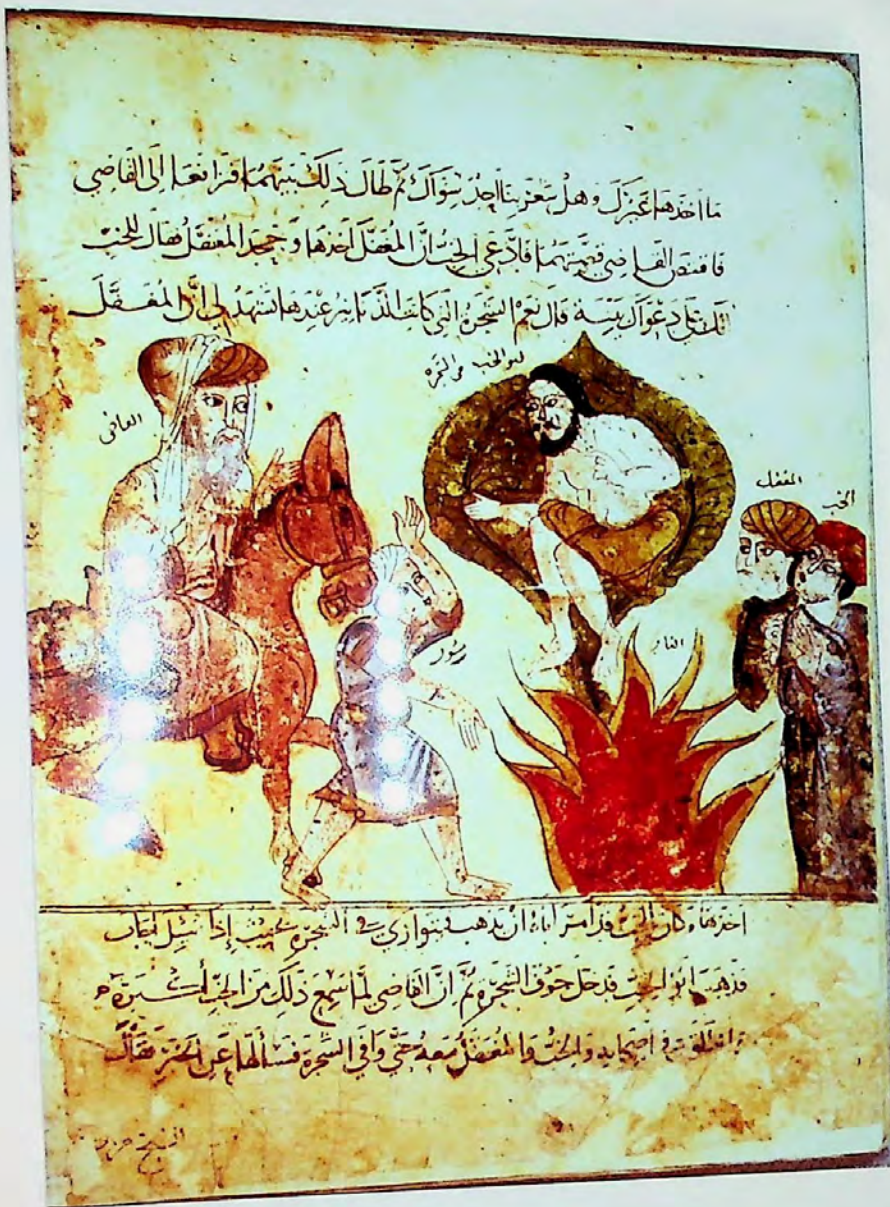 ما اخذها غيرك وهل شعر بنا احد سواك ثم طال ذلك بينهما فترافعا الى القاضي
فاقتص القاضي قصتهما فادعى الخب ان المغفل اخذها وجحد المغفل فقال للخب
الك على دعواك بينة قال نعم الشجرة التي كانت الدنانير عندها تشهد لي ان المغفل
القاضى
ابو الخب في الشجرة
المغفل
الخب
رسول
النار
اخذها وكان الخب قد امر اباه ان يذهب فيتوارى في الشجرة بحيث إذا سئل اجاب
فذهب ابو الخب فدخل جوف الشجرة ثم ان القاضي لما سمع ذلك من الخب أكبره
وانطلق في اصحابه والخب والمغفل معه حتى وافى الشجرة فسألها عن الخبر فقال
الشيخ من